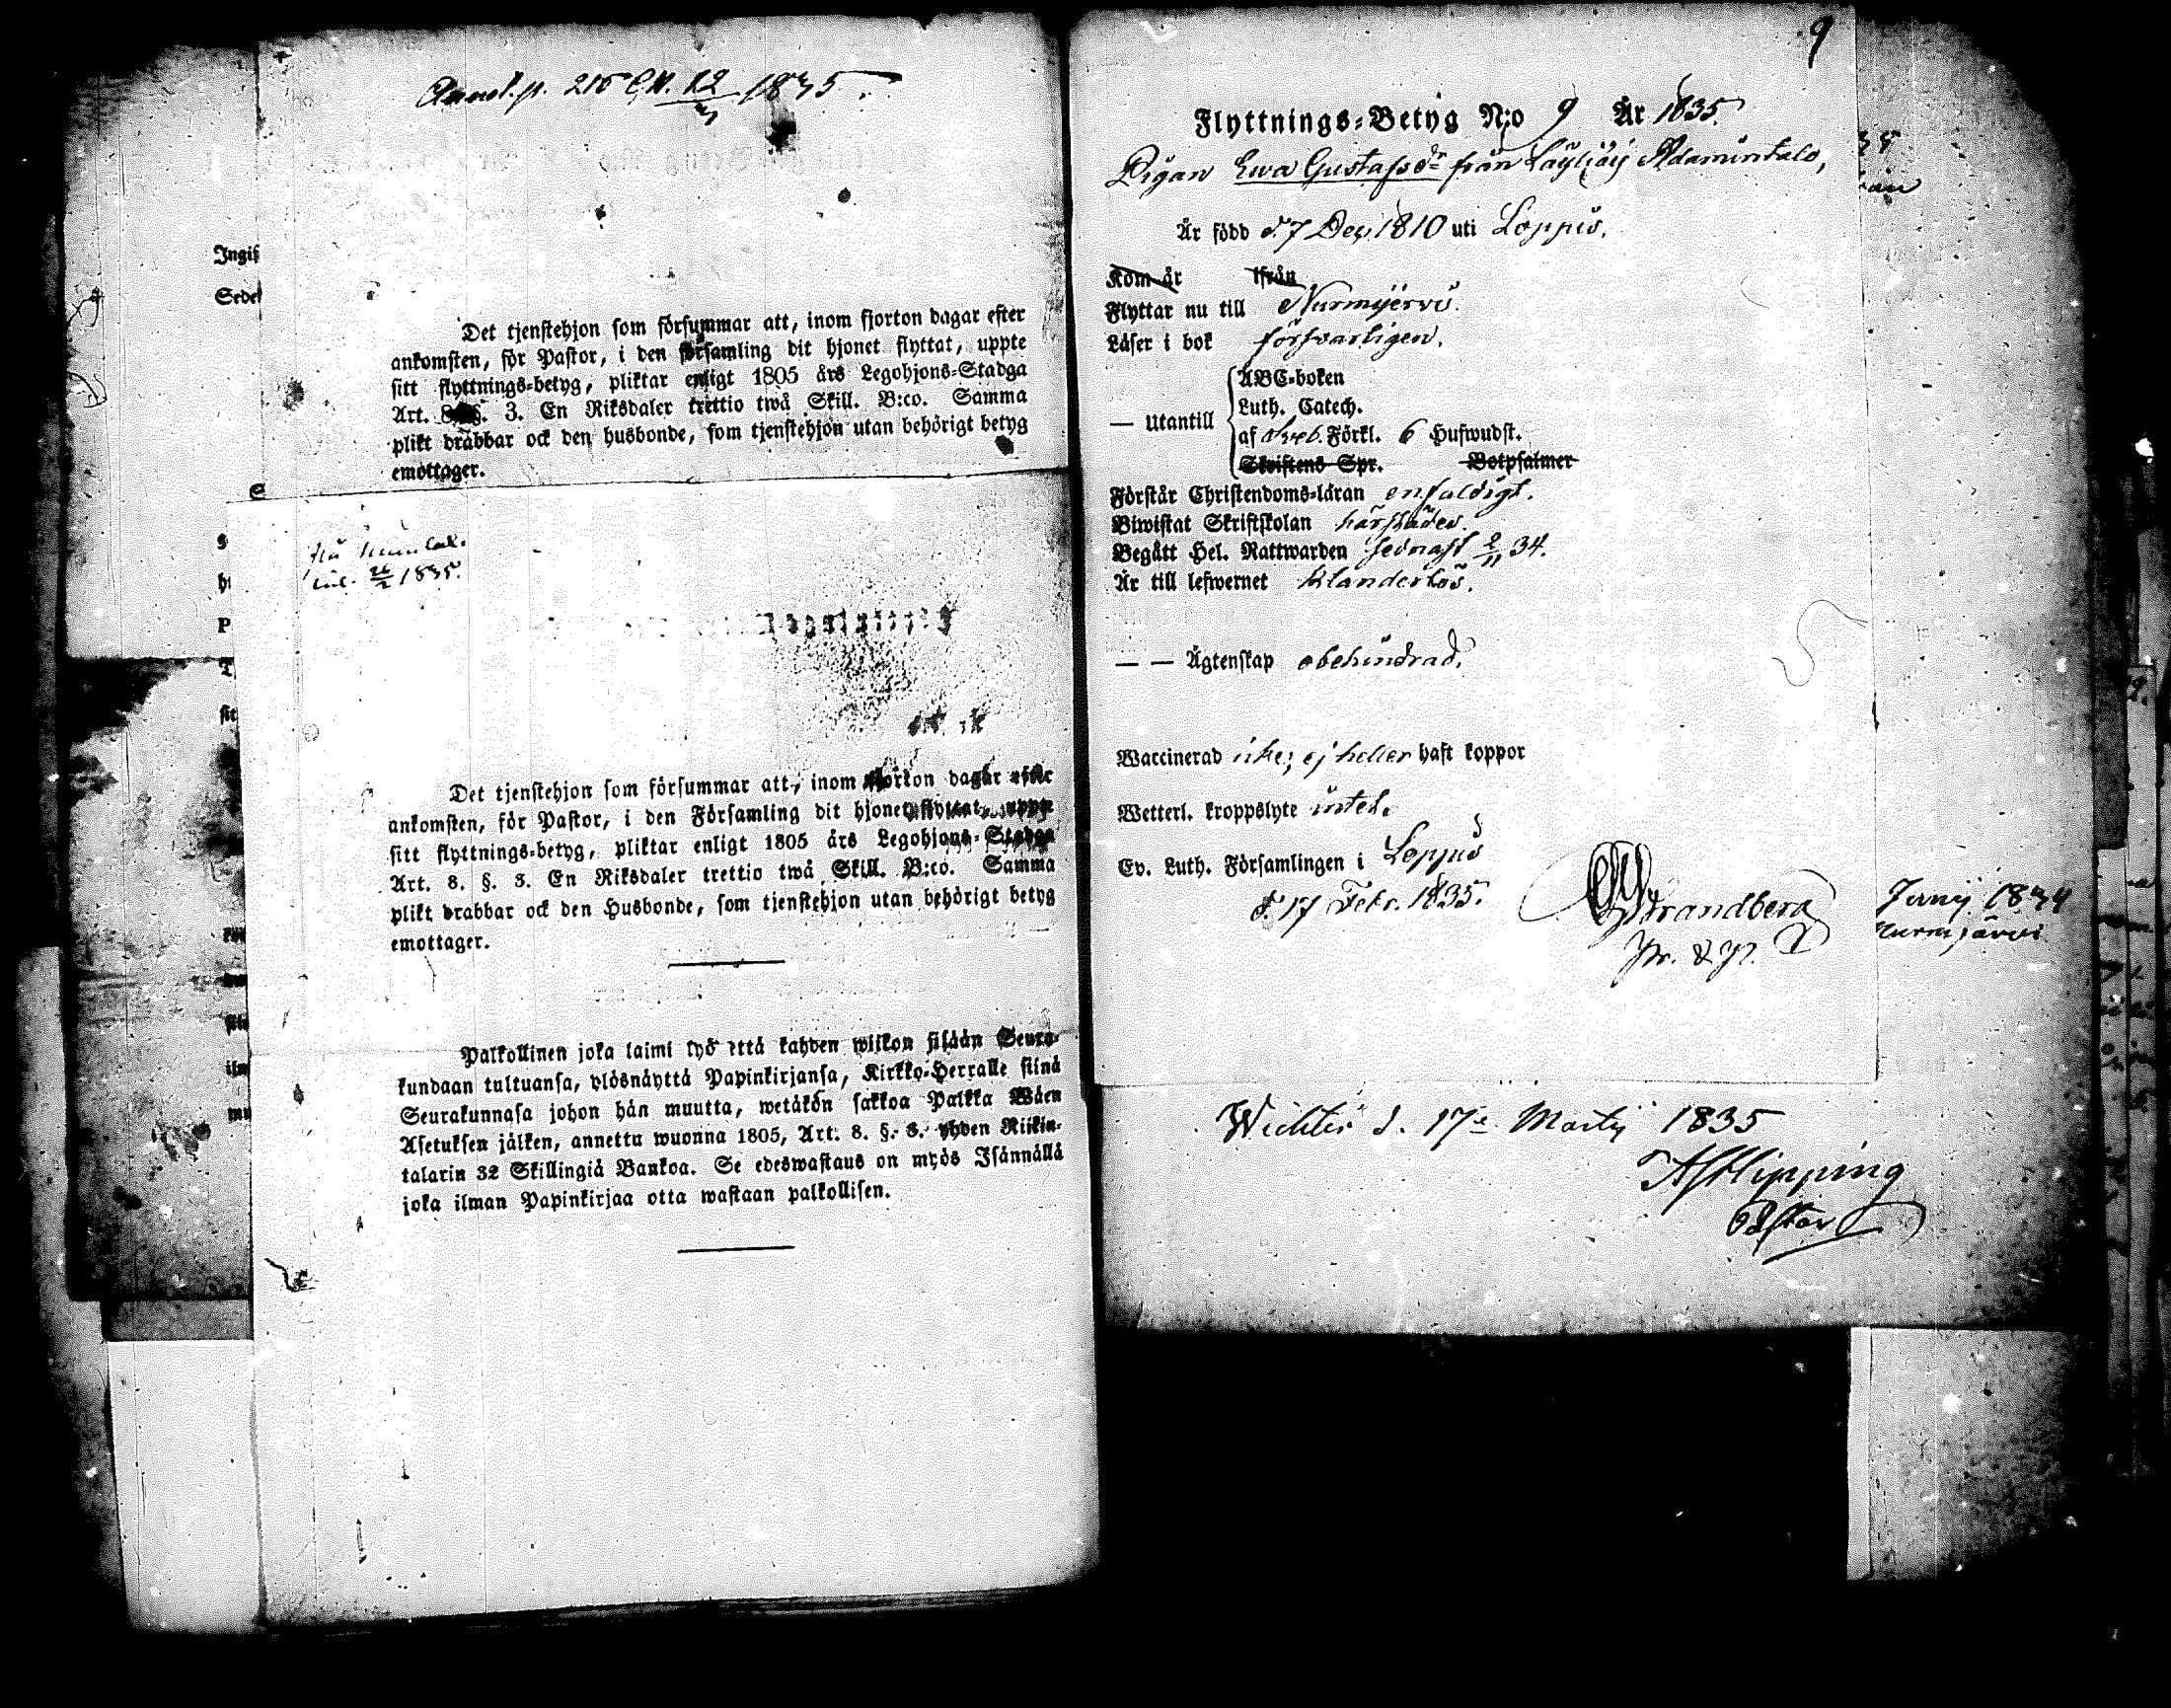 Annot. p. 215 12/3 1835.
Ingif
Sedel
Det tjenstehjon som försummar att, inom fjorton dagar efter
ankomsten, för Pastor, i den församling dit hjonet flyttat, uppte
sitt flyttnings-betyg, pliktar enligt 1805 års Legohjons-Stadga
Art. 8. §. 3. En Riksdaler trettio twå Skill. B:co. Samma
plikt drabbar ock den husbonde, som tjenstehjon utan behörigt betyg
emottager.
26/2 1835.
Det tjenstehjon som försummar att, inom fjorton dagar efter
ankomsten, för Pastor, i den Församling dit hjonet flyttat, uppte
sitt flyttnings-betyg, pliktar enligt 1805 års Legohjons-Stadga
Art. 8. §. 3. En Riksdaler trettio twå Skill. B:co. Samma
plikt drabbar ock den Husbonde, som tjenstehjon utan behörigt betyg
emottager.
Palkollinen joka laimi lyö että kahden wiikon sisään Seura-
kundaan tultuansa, ylösnäyttä Papinkirjansa, Kirkko-Herralle siinä
Seurakunnasa johon hän muutta, wetäkön sakkoa Palkka Wäen
Asetuksen jälken, annettu wuonna 1805, Art. 8. §. 3. yhden Riikin-
talarin 32 Skillingiä Bankoa. Se edeswastaus on myös Isännällä
joka ilman Papinkirjaa otta wastaan palkollisen.
9
Flyttnings-Betyg N:o 9 År 1835.
Pigan Ewa Gustafsdr från Läyliäis Adamintalo,
Är född d. 7 Dec. 1810 uti Loppis.
Kom år ifrån
Flyttar nu till Nurmijervi.
Läser i bok försvarligen.
— Utantill
ABC-boken
Luth. Catech.
af Sveb. Förkl. 6 Hufwudst.
Skriftens Spr. Botpsalmer
Förstår Christendoms-läran enfaldigt.
Biwistat Skriftskolan härstädes.
Begått Hel. Nattwarden sednast 2/11 34.
Är till lefwernet klanderlös.
— — Ägtenskap obehindrad.
Waccinerad icke; ej heller haft koppor
Wetterl. kroppslyte intet.
Ev. Luth. Församlingen i Loppis
d. 17 Febr. 1835.
Strandberg
Junij 1834
Nurmijärvi
Wichtis d. 17e Martij 1835
Hipping
Pastor